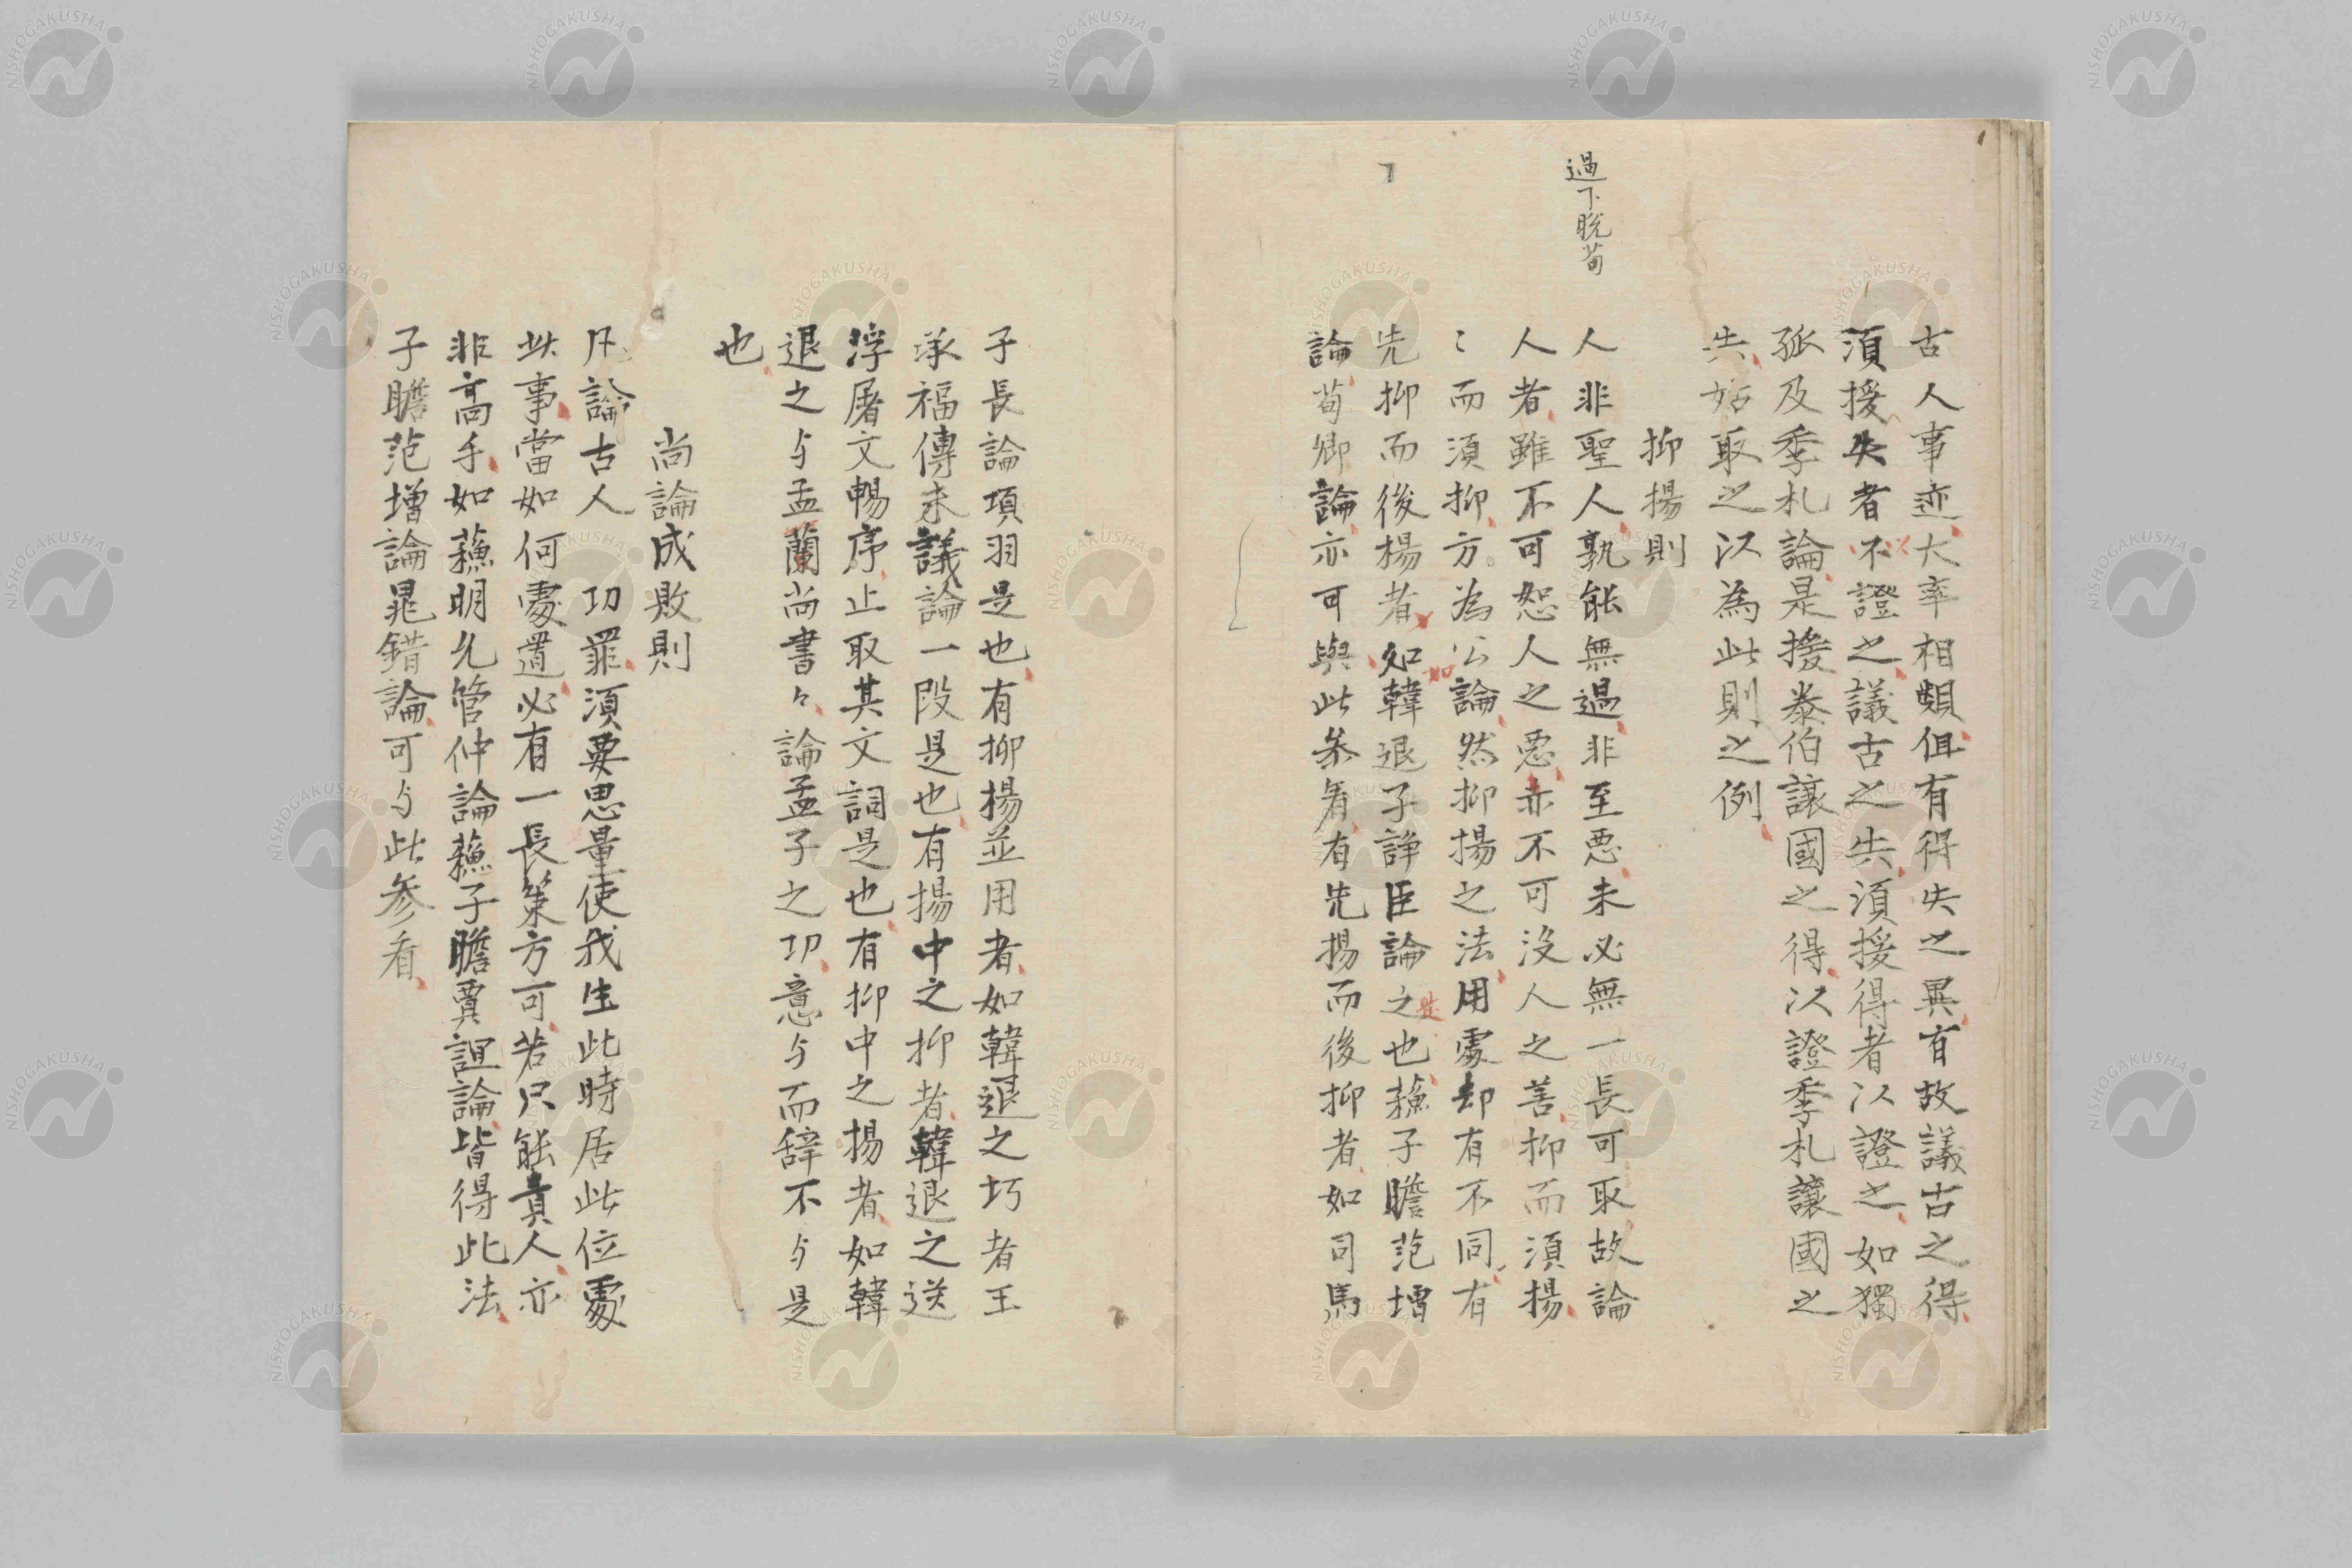 過下脫苟
古人事迹大率相類但有得失之異有故議古之得
須援失者不證之議古之失須援得者以證之如獨
孤及季札論是援泰伯讓國之得以證季札讓國之
失始取之以為此則之例
抑揚則
人非聖人孰能無過非至惡未必無一長可取故論
人者雖不可恕人之惡亦不可沒人之善抑而須揚
〻而須抑方為公論然抑揚之法用處却有不同有
先抑而後揚者如韓退子諍臣論之也蘇子瞻范增
如
是
論荀卿論亦可與此叅看有先揚而後抑者如司馬
子長論項羽是也有抑揚並用者如韓退之圬者王
承福傳末議論一段是也有揚中之抑者韓退之送
浮屠文暢序止取其文詞是也有抑中之揚者如韓
退之与孟蘭尚書々論孟子之功意与而辞不与是
也
尚論成敗則
凡論古人功罪須要思量使我生此時居此位處
此事當如何處置必有一長策方可若只能責人亦
非高手如蘇明允管仲論蘇子瞻賈誼論皆得此法
子瞻范增論晁錯論可与此参看